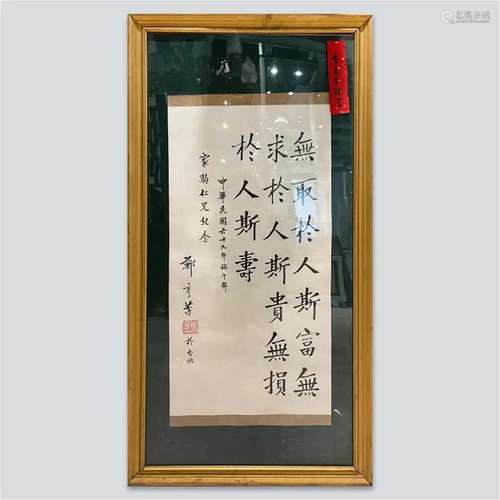 無取於人斯富無
求於人斯貴無損
於人斯壽
中華民國六十九年端午節
家駒仁兄紀念
鄭彥棻
於台北